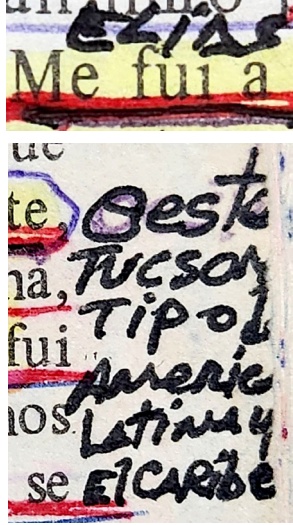 ELIAS
Me fui a
ue
te, Oeste
na, TUCSON
TIPO
fui
AMERIC
nos LATINA y
se El CARIBE